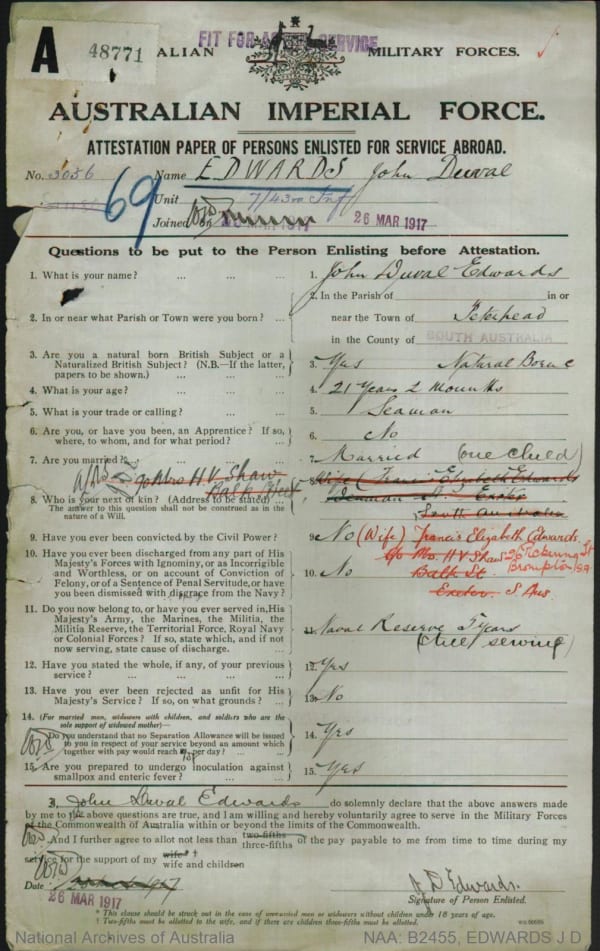 A
48771
FIT FOR ACTIVE SERVICE
ALIAN MILITARY FORCES.
AUSTRALIAN IMPERIAL FORCE.
ATTESTATION PAPER OF PERSONS ENLISTED FOR SERVICE ABROAD.
No. 3056 Name EDWARDS John Duval
69 Unit 7/43rd Inf
Joined on 26 MAR 1917
Questions to be put to the Person Enlisting before Attestation.
1. What is your name? ... ... ... 1. John Duval Edwards
2. In or near what Parish or Town were you born? ... 2. In the Parish of in or
near the Town of Peterhead
in the County of SOUTH AUSTRALIA
3. Are you a natural born British Subject or a
Naturalized British Subject? (N.B.—If the latter,
papers to be shown.) ... ... 3. Yes Natural Born
4. What is your age? ... ... ... 4. 21 Years 2 Mounths
5. What is your trade or calling? ... ... 5. Seaman
6. Are you, or have you been, an Apprentice? If so,
where, to whom, and for what period? ... 6. No
7. Are you married? ... ... ... 7. Married (one Child)
c/o Mrs H V Shaw
Balk St
8. Who is your next of kin? (Address to be stated) ...
The answer to this question shall not be construed as in the
nature of a Will.
Wife (Francis Elizabeth Edwards
Denman St Exeter
South Australia
9. Have you ever been convicted by the Civil Power? 9. No
(Wife) Francis Elizabeth Edwards
c/o Mrs H V Shaw
Balk St
Exeter S Aus
26 Pickering St
Brompton
10. Have you ever been discharged from any part of His
Majesty's Forces with Ignominy, or as Incorrigible
and Worthless, or on account of Conviction of
Felony, or of a Sentence of Penal Servitude, or have
you been dismissed with disgrace from the Navy? 10. No
11. Do you now belong to, or have you ever served in, His
Majesty's Army, the Marines, the Militia, the
Militia Reserve, the Territorial Force, Royal Navy
or Colonial Forces? If so, state which, and if not
now serving, state cause of discharge. 11. Naval Reserve 5 years
(still serving)
12. Have you stated the whole, if any, of your previous
service? ... ... ... 12. Yes
13. Have you ever been rejected as unfit for His
Majesty's Service? If so, on what grounds? 13. No
14. (For married men, widowers with children, and soldiers who are the
sole support of widowed mother)—
Do you understand that no Separation Allowance will be issued
to you in respect of your service beyond an amount which
together with pay would reach per day? ... 14. Yes
15. Are you prepared to undergo inoculation against
smallpox and enteric fever? ... ... 15. Yes
I, John Duval Edwards do solemnly declare that the above answers made
by me to the above questions are true, and I am willing and hereby voluntarily agree to serve in the Military Forces
of the Commonwealth of Australia within or beyond the limits of the Commonwealth.
And I further agree to allot not less than two-fifths
three-fifths of the pay payable to me from time to time during my
service for the support of my wife* †
wife and children
Date
26 MAR 1917
J D Edwards.
Signature of Person Enlisted.
* This clause should be struck out in the case of unmarried men or widowers without children under 18 years of age.
† Two-fifths must be allotted to the wife, and if there are children three-fifths must be allotted.
National Archives of Australia NAA: B2455, EDWARDS J D